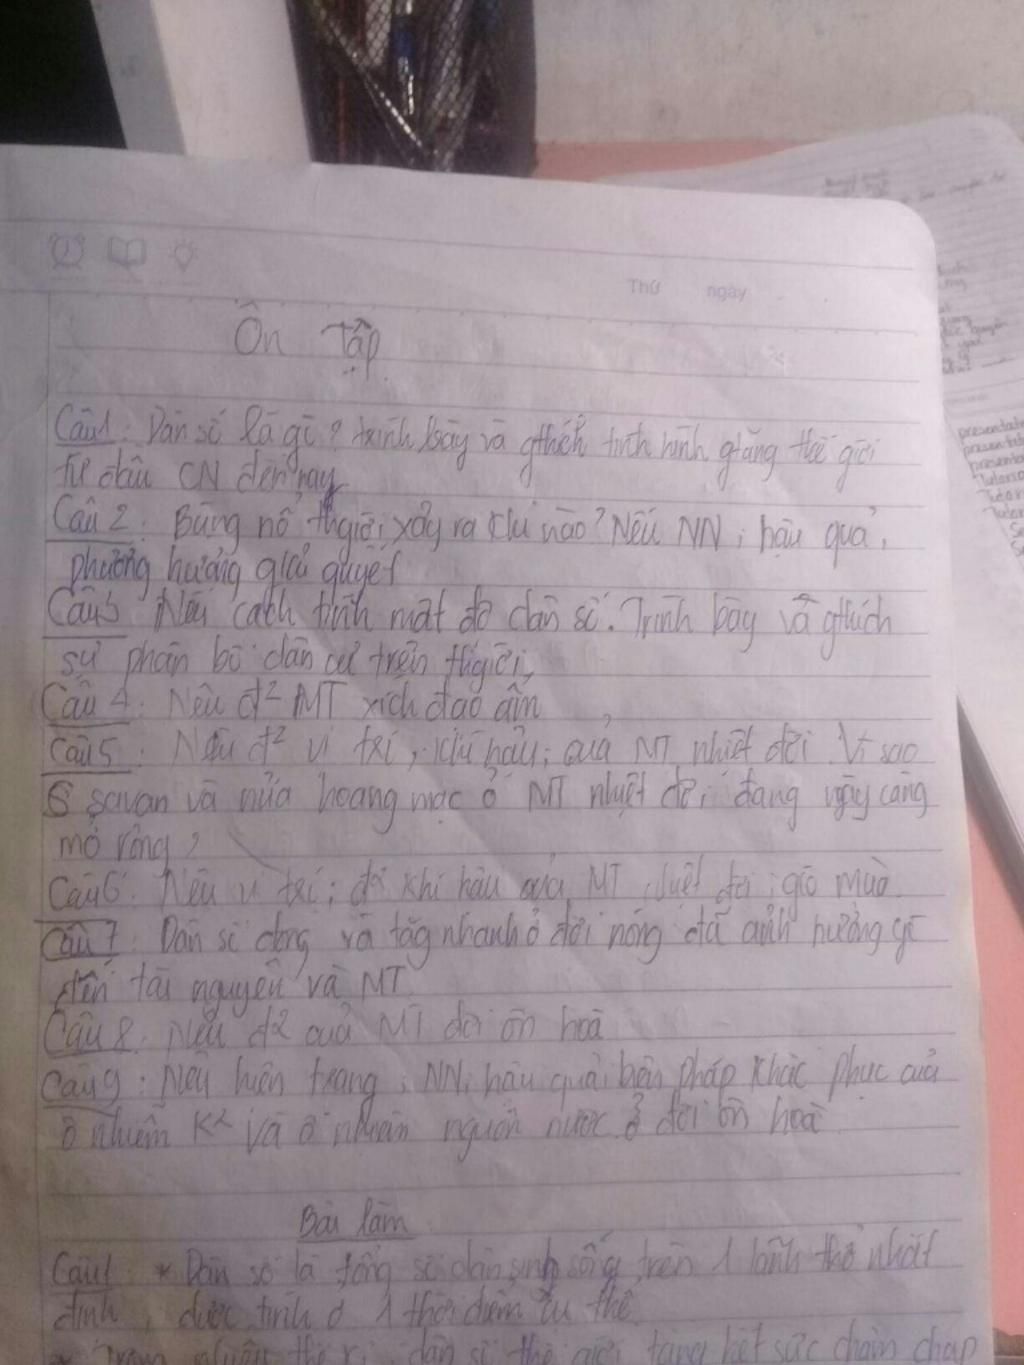 Thứ ngày
Ôn Tập
Câu 1: Dân số là gì? trình bày và gthích tình hình gtăng thế giới
từ đầu CN đến nay
Câu 2: Bùng nổ thgiới xảy ra khi nào? Nêu NN, hậu quả,
phương hướng giải quyết
Câu 3 Nêu cách tính mật độ dân số. Trình bày và gthích
sự phân bố dân cư trên thgiới,
Câu 4: Nêu đ² MT xích đạo ẩm
Câu 5: Nêu đ² vị trí, khí hậu, của MT nhiệt đới. Vì sao
savan và nửa hoang mạc ở MT nhiệt đới đang ngày càng
mở rộng?
Câu 6: Nêu vị trí; đ² khí hậu của MT nhiệt đới gió mùa.
Câu 7: Dân số đông và tăg nhanh ở đới nóng đã ảnh hưởng gì
đến tài nguyên và MT
Câu 8: Nêu đ² của MT đới ôn hoà
Câu 9: Nêu hiện trạng, NN, hậu quả, biện pháp khắc phục của
ô nhiễm K² và ô nhiễm nguồn nước ở đới ôn hoà
Bài làm
Câu 1 * Dân số là tổng số dân sinh sống trên 1 lãnh thổ nhất
định, được tính ở 1 thời điểm cụ thể
* Trong nhiều thế kỉ, dân số thế giới tăng hết sức chậm chạp
presentat
presentat
presenta
Tutoria